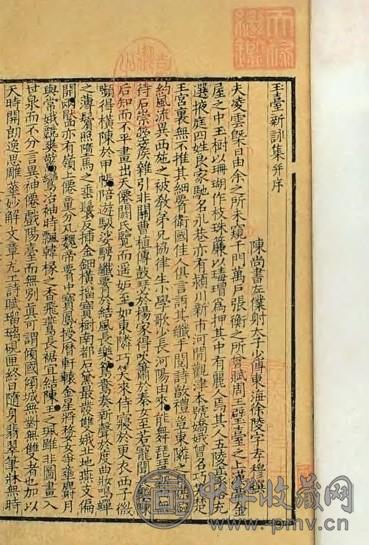 玉臺新詠集并序
陳尚書左僕射太子少傅東海徐陵字孝穆撰
夫凌雲槩日由余之所未窺千門萬戶張衡之所曾賦周王璧臺之上漢帝金
屋之中玉樹以珊瑚作枝珠簾以玳瑁為押其中有麗人焉其人五陵豪族充
選掖庭四姓良家馳名永巷亦有潁川新市河間觀津本號嬌娥曾名巧笑楚
王宮裏無不推其細腰衛國佳人俱言訝其纖手閱詩敦禮豈東隣之自媒婉
約風流異西施之被教弟兄協律生小學歌少長河陽由來能舞琵琶新曲無
待石崇箜篌雜引非關曹植傳鼓瑟於楊家得吹簫於秦女至若寵聞長樂陳
后知而不平畫出天僊閼氏覽而遥妬至如東隣巧笑來侍寢於更衣西子微
顰得橫陳於甲帳陪遊馺娑騁纖腰於結風長樂鴛鴦奏新聲於度曲妝鳴蟬
之薄鬢照墮馬之垂鬟反插金鈿橫抽寶樹南都石黛最發雙蛾北地燕支偏
開兩靨亦有嶺上僊童分丸魏帝腰中寶鳳授曆軒轅金星將婺女爭華麝月
與常娥競爽驚鸞冶袖時飄韓掾之香飛燕長裾宜結陳王之珮雖非圖畫入
甘泉而不分言異神僊戲陽臺而無別真可謂傾國傾城無對無雙者也加以
天時開朗逸思雕華妙解文章尤工詩賦瑠璃硯匣終日隨身翡翠筆牀無時
中华收藏网
www.pmv.cn